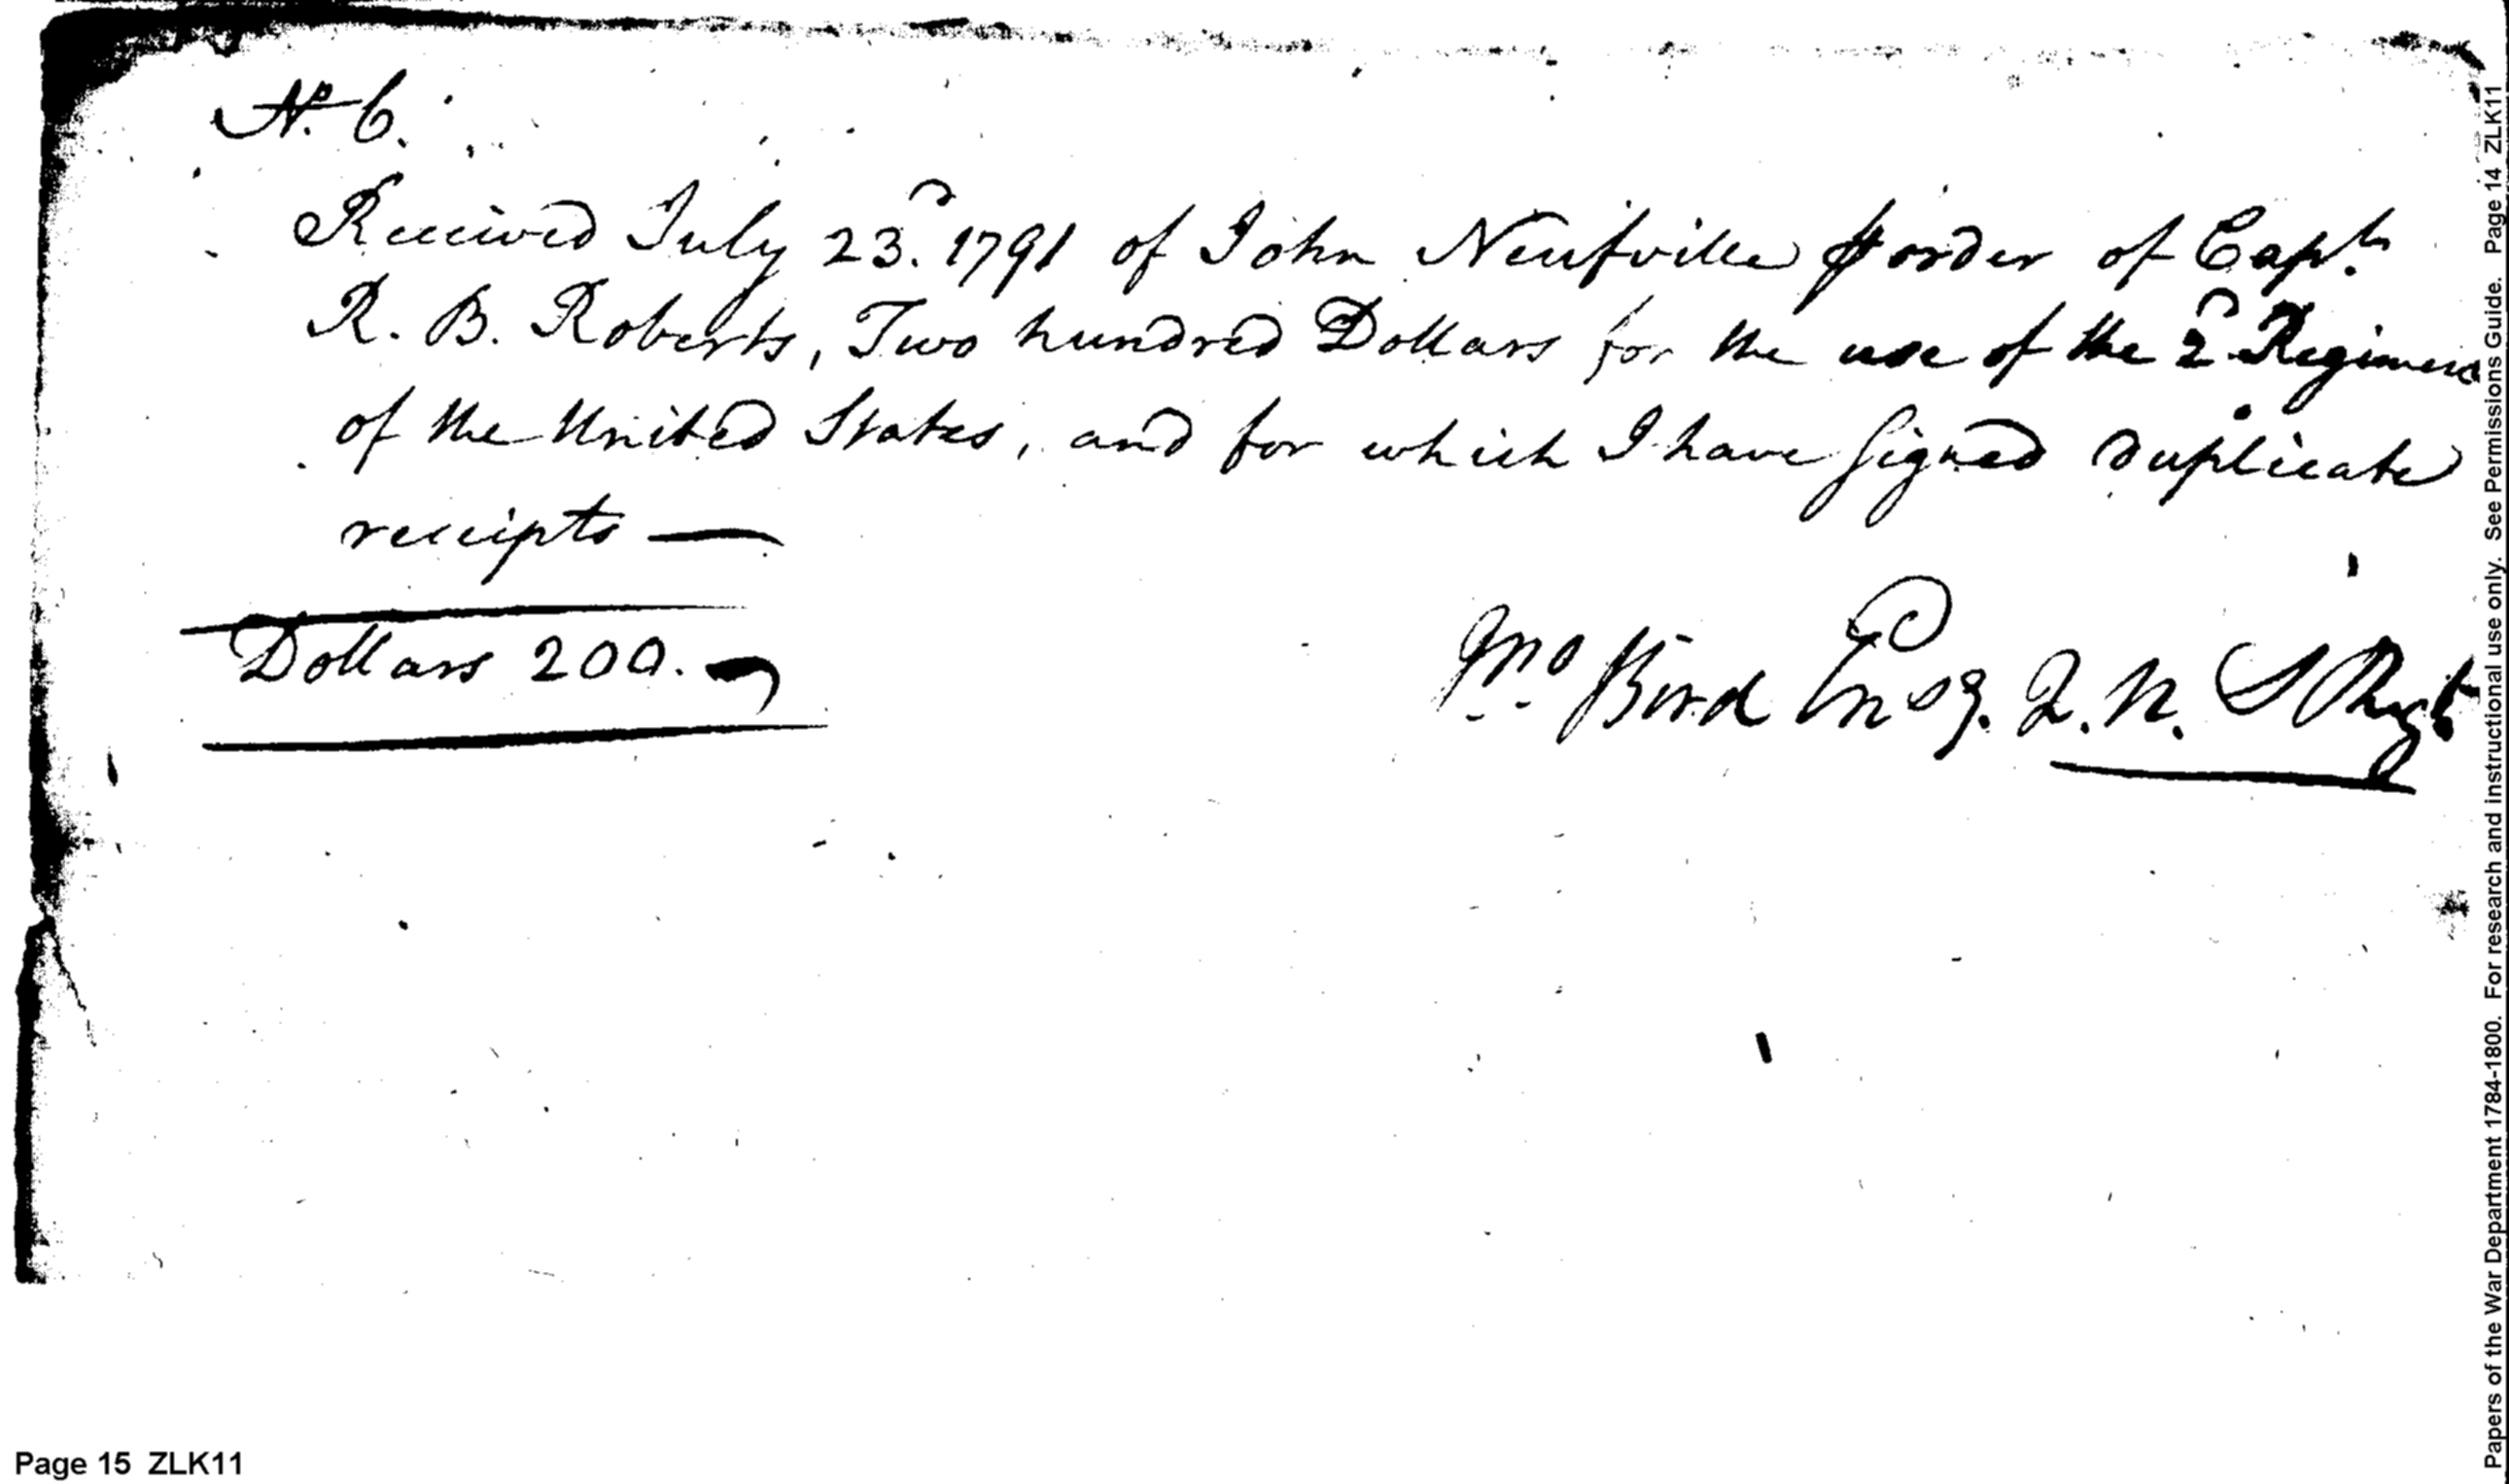 No. 6.
Received July 23.d 1791 of John Neufville ⅌ order of Capt.n
R. B. Roberts, Two hundred Dollars for the use of the 2.d Regiment
of the United States, and for which I have signed duplicate
receipts —
Dollars 200. —
Jno Bird Ensg. 2. U. S Regt
Page 15 ZLK11
Papers of the War Department 1784-1800. For research and instructional use only. See Permissions Guide. Page 14 ZLK11